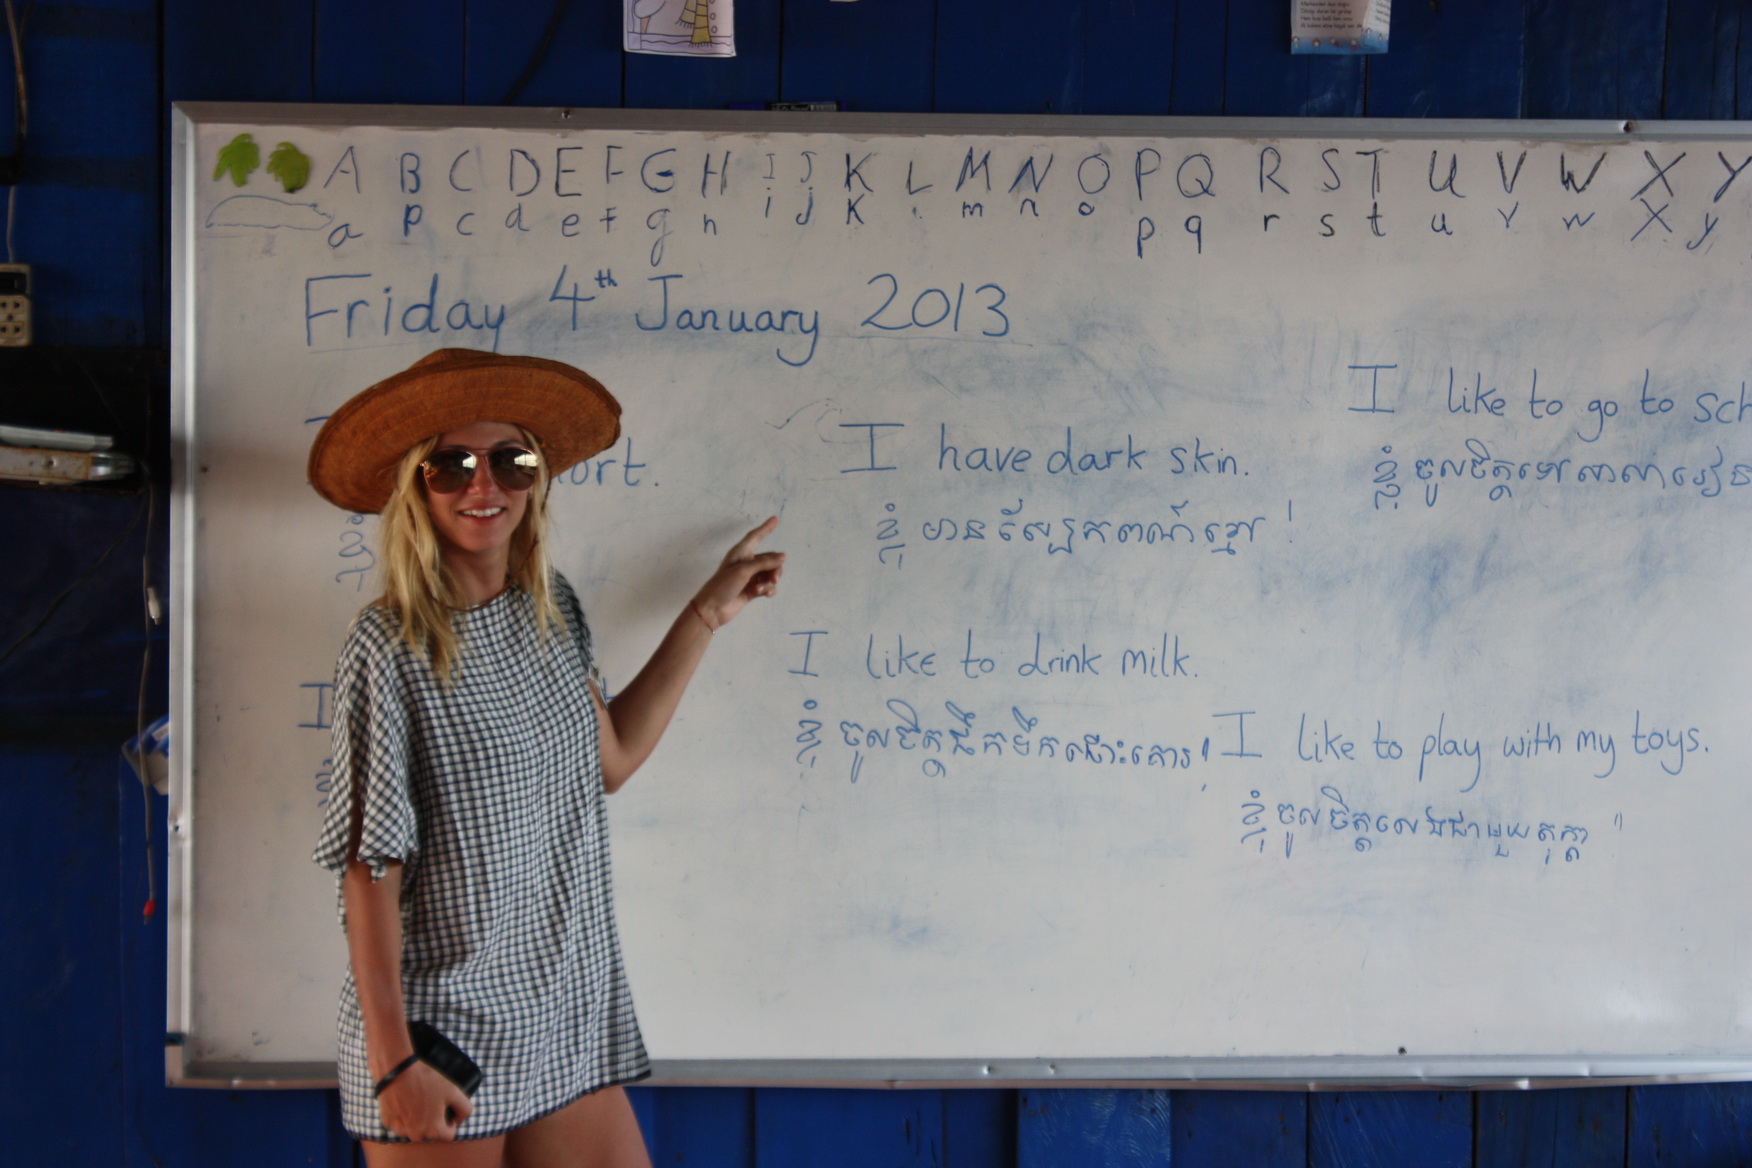 A B C D E F G H I J K L M N O P Q R S T U V W X Y
a p c d e f g h i j K m n o p q r s t u v w X y
Friday 4th January 2013
I like to go to sch
ខ្ញុំ ចូលចិត្តទៅសាលារៀន
I ort.
I have dark skin.
ខ្ញុំ មានស្បែកពណ៌ខ្មៅ !
I like to drink milk.
ខ្ញុំ ចូលចិត្តផឹកទឹកដោះគោ
I
I like to play with my toys.
ខ្ញុំចូលចិត្តលេងជាមួយតុក្កតា